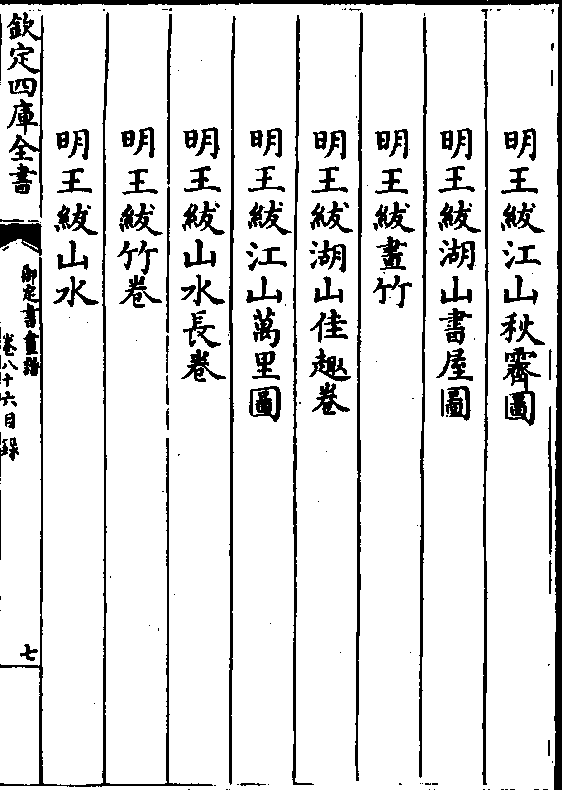 明王紱江山秋霽圖
明王紱湖山書屋圖
明王紱畫竹
明王紱湖山佳趣卷
明王紱江山萬里圖
明王紱山水長卷
明王紱竹卷
明王紱山水
欽定四庫全書
御定書畫譜
卷八十六目録
七